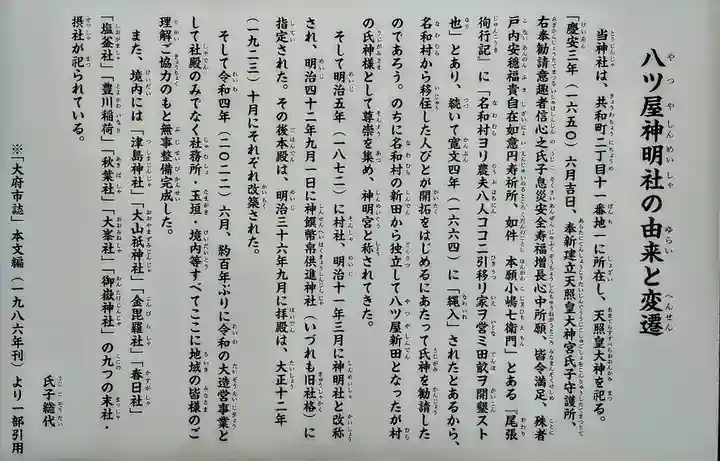 八ツ屋神明社の由来と変遷
当神社は、共和町二丁目十一番地一に所在し、天照皇大神を祀る。
「慶安三年(一六五〇)六月吉日、奉新建立天照皇大神宮氏子守護所、
右奉勧請意趣者信心之氏子息災安全寿福増長心中所願、皆令満足、殊者
戸内安穏福貴自在如意円寿祈所、如件 本願小嶋七衛門」とある『尾張
徇行記』に「名和村ヨリ農夫八人ココニ引移リ家ヲ営ミ田畝ヲ開墾スト
也」とあり、続いて寛文四年(一六六四)に「縄入」されたとあるから、
名和村から移住した人びとが開拓をはじめるにあたって氏神を勧請した
のであろう。のちに名和村の新田から独立して八ツ屋新田となったが村
の氏神様として尊崇を集め、神明宮と称されてきた。
そして明治五年(一八七二)に村社、明治十一年三月に神明社と改称
され、明治四十二年九月一日に神饌幣帛供進神社(いづれも旧社格)に
指定された。その後本殿は、明治三十六年九月に拝殿は、大正十二年
(一九二三)十月にそれぞれ改築された。
そして令和四年(二〇二二)六月、約百年ぶりに令和の大造営事業と
して社殿のみでなく社務所・玉垣・境内等すべてここに地域の皆様のご
理解ご協力のもと無事整備完成した。
また、境内には「津島神社」「大山祇神社」「金毘羅社」「春日社」
「塩釜社」「豊川稲荷」「秋葉社」「大峯社」「御嶽神社」の九つの末社・
摂社が祀られている。
氏子総代
※『大府市誌』本文編(一九八六年刊)より一部引用